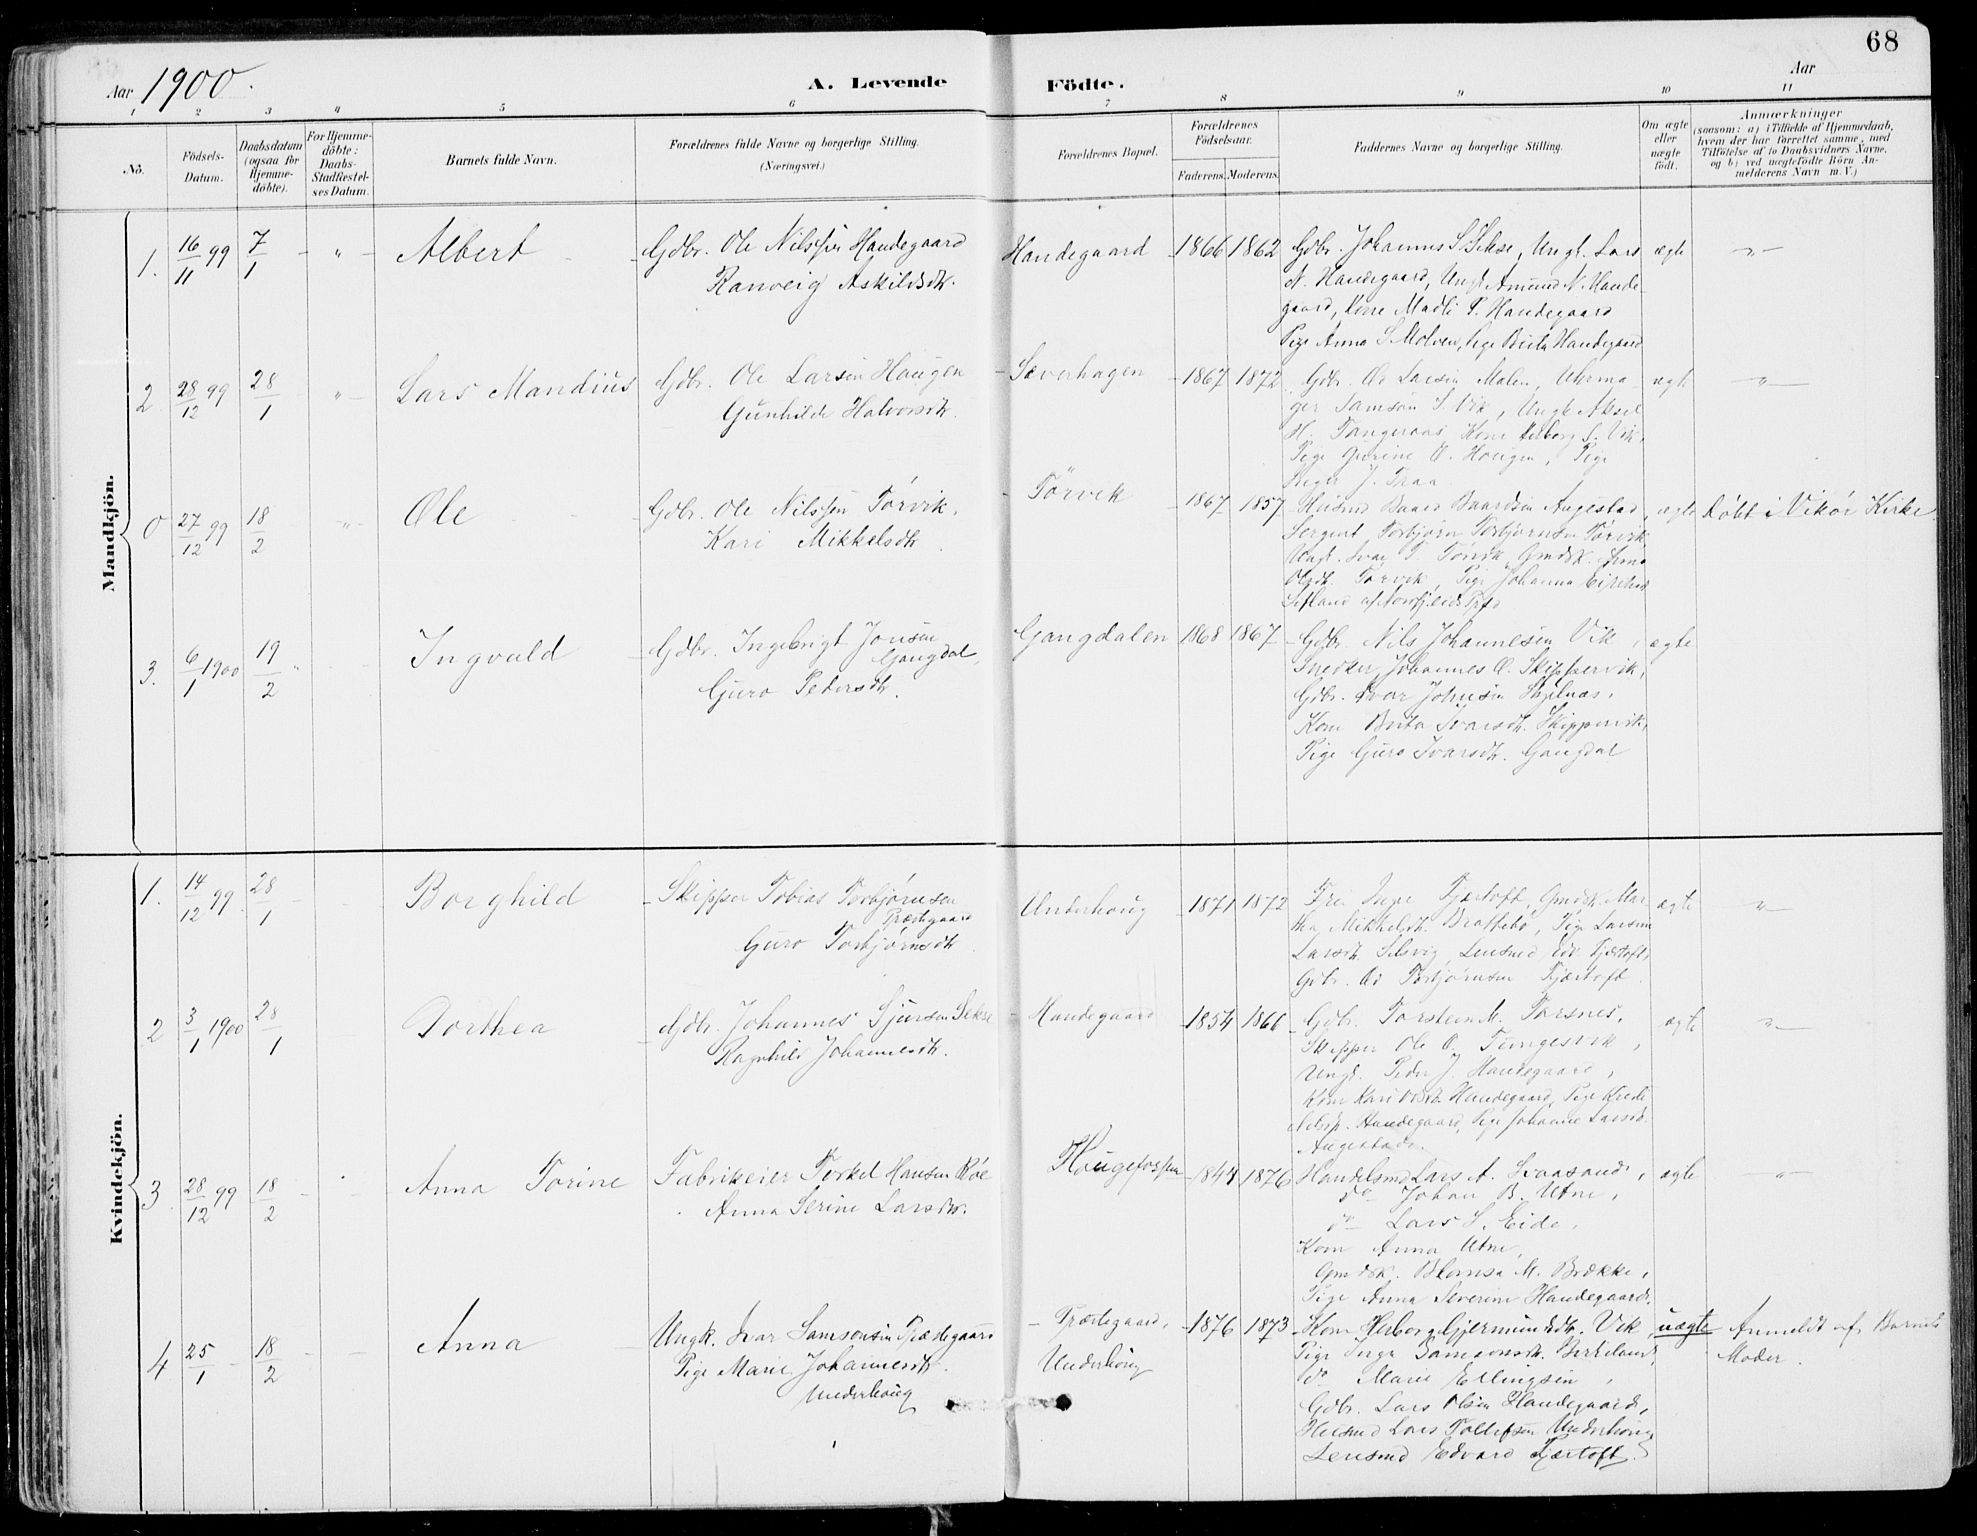 68
Aar 1900.
A. Levende Födte.
Aar
1 2 3 4 5 6 7 8 9 10 11
No.
Födsels-
Datum.
Daabsdatum
(ogsaa for
Hjemme-
döbte).
For Hjemme-
döbte:
Daabs-
Stadfæstel-
ses Datum.
Barnets fulde Navn.
Forældrenes fulde Navne og borgerlige Stilling.
(Næringsvei.)
Forældrenes Bopæl.
Forældrenes
Födselsaar.
Faderens. Moderens.
Faddernes Navne og borgerlig Stilling.
Om ægte
eller
uægte
födt.
Anmærkninger
(saasom: a) i Tilfælde af Hjemmedaab,
hvem der har forrettet samme, med
Tilföielse af to Daabsvidners Navne,
og b) ved uegtefödte Börn An-
melderens Navn m. V.)
Mandkjön.
1. 16/11 99 7/1 - " - Albert - Gdbr. Ole Nilssen Handegaard
Ranveig Askildsdtr.
Handegaard - 1866 1862
Gdbr. Johannes S. Sekse, Ungk. Lars
N. Handegaard, Ungk. Amund N. Hande-
gaard, Kone Madli P. Handegaard
Pige Anna S. Molven, Pige Brita Handegaard
ægte - " -
2 28/12 99 28/1 - " - Lars Mandius Gdbr. Ole Larsen Haugen
Gunhilde Halvorsdtr.
- Sæverhagen - 1867 1872
Gdbr. Od Larsen Malen, Uhrma-
ger Samson S. Vik, Ungk. Aksel
H. Tangeraas, Kone Herborg S. Vik,
Pige Gurine O. Hougen, Pige
J. Traa
ægte - " -
0 27/12 99 18/2 - " - Ole - Gdbr. Ole Nilssen Tørvik,
Kari Mikkelsdtr.
- Tørvik - 1867 1857
Husmd Baard Baardsen Augestad,
Sergent Torbjørn Torbjørnsen Tørvik,
Ungk. Ivar T. Tørvik, Gmdsk. Anna
Olsdtr. Tørvik, Pige Johanna
ægte Døbt i Vikør Kirke
3. 6/1 1900 19/2 " - Ingvald - Gdbr. Ingebrigt Jonsen
Gangdal,
Guro Pedersdtr.
Gangdalen 1868 1867
Gdbr. Nils Johannesen Vik,
Snedker Johannes O. Skippervik,
Gdbr. Ivar Johnsen
Kone Brita Ivarsdtr. Skippervik,
Pige Guro Ivarsdtr. Gangdal
ægte
Kvindekjön.
1. 14/12 99 28/1 - - Borghild - Skipper Tobias Torbjørnsen
Trædegaard
Guro Torbjørnsdtr.
Underhoug - 1871 1872
Inge Tjærtoft, Gmdsk. Mar-
tha Mikkelsdtr. Brattebø, Pige Larsine
Larsdtr. Selsvig, Lensmd Edv. Tjærtoft,
Gdbr. Od Torbjørnsen Tjærtoft.
ægte - " -
2 3/1 1900 28/1 - Dorthea - Gdbr. Johannes Sjursen Sekse
Ragnhild Johannesdtr.
- Handegaard - 1854 1866
Gdbr. Torstein M. Torsnes,
Skipper Ole O. Tungesvik,
Ungk. Peder J. Handegaard,
Kone Kari Olsdtr. Handegaard, Pige
Handegaard, Pige Johanne Larsdtr.
Augestad.
ægte - " -
3. 28/12 99 18/2 - Anna Torine Fabrikeier Torkel Hansen Røe
Anna Serine Larsdtr.
Hougefossen - 1844 1876
Handelsmd Lars A. Svaasand,
do Johan B. Utne,
do Lars S. Eide,
Kone Anna Utne,
Gmdsk. M. Brække,
Pige Anna Severine Handegaard.
ægte "
4 25/1 - 18/2 - - Anna Ungk. Ivar Samsonsen Trædegaard
Pige Marie Johannesdtr.
Underhoug
- Trædegaard,
Underhoug
- 1876 1873
Kone Herborg Gjermundsdtr. Vik,
Pige Inga Samsonsdtr. Birkeland,
do Marie Ellingsen,
Gdbr. Lars Olsen Handegaard,
Husmd Lars Tollefsen Underhoug
Lensmd Edvard Tjærtoft.
uægte Anmeldt af Barnets
Moder.